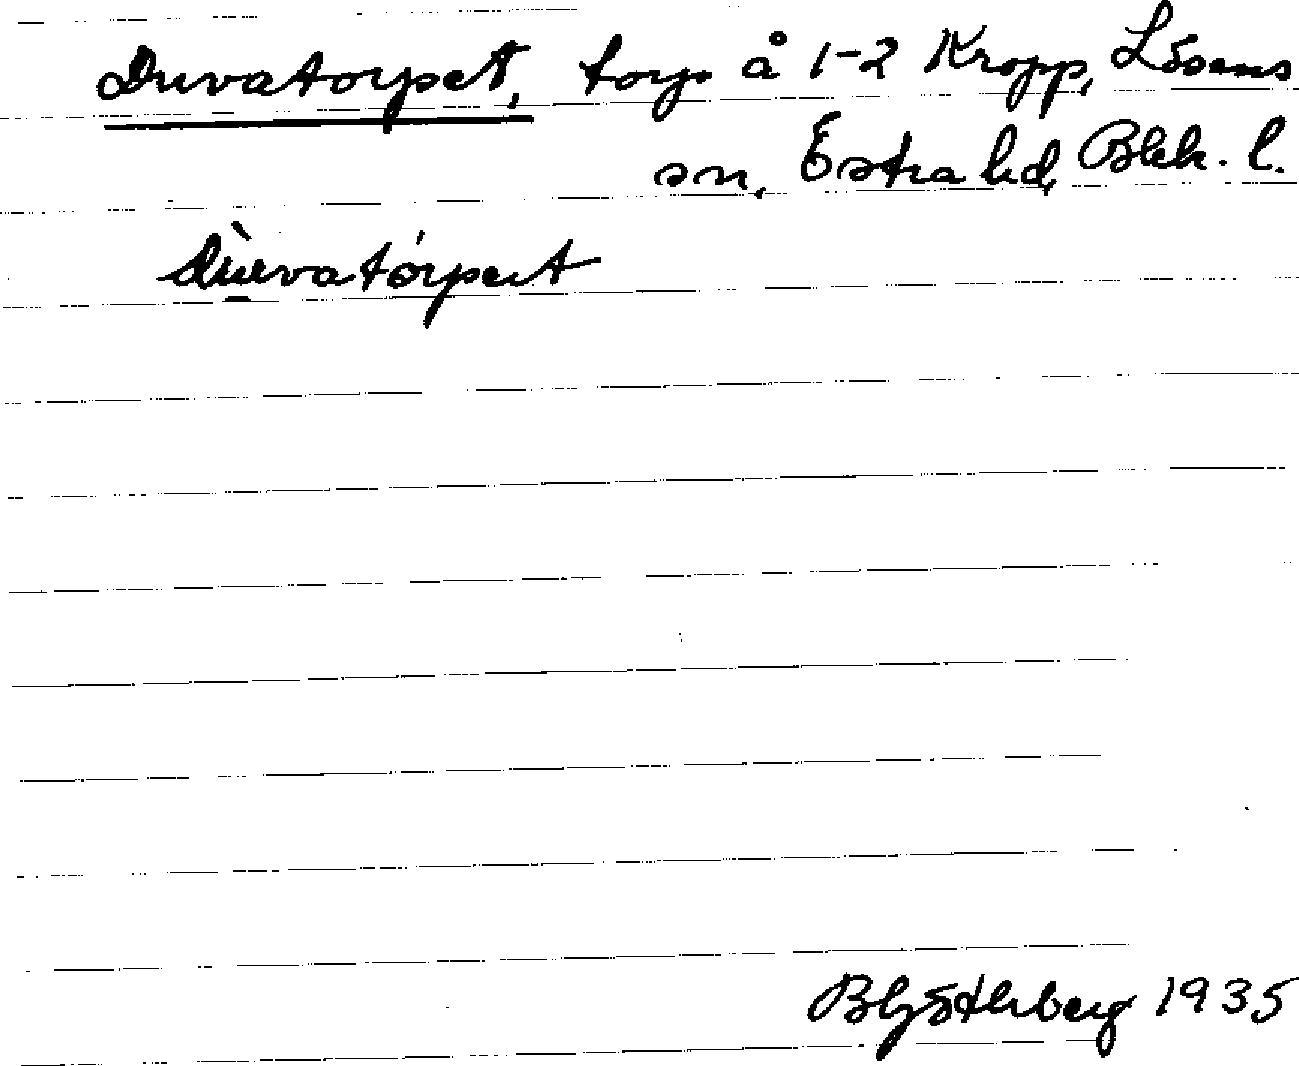 Duvatorpet, torp å 1-2 Kropp, Lösens
sn, Östra hd, Blek. l.
1935